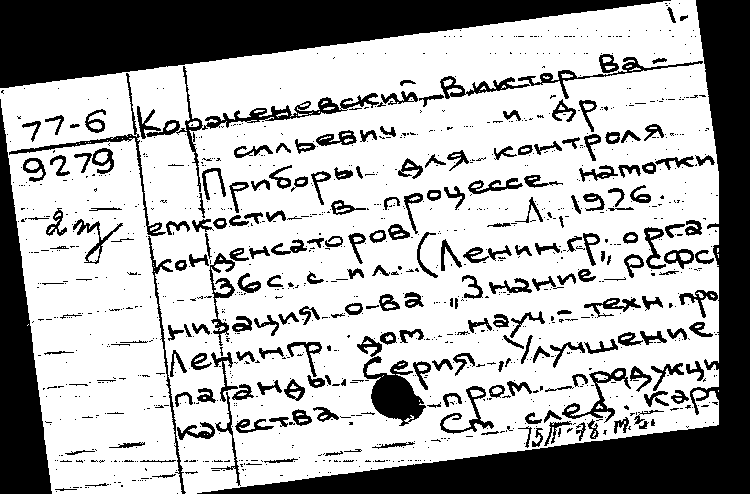 1.-
77-6
9279
2 тз
Корженевский, Виктор Ва-
сильевич и др.
Приборы для контроля
емкости в процессе намотки
конденсаторов Л., 1976.
36с. с ил. (Ленингр. орга-
низация о-ва „Знание" РСФСР
Ленингр. дом науч.-техн. про
паганды. Серия „Улучшение
качества пром. продукци
См. след. карт
15/III-78.